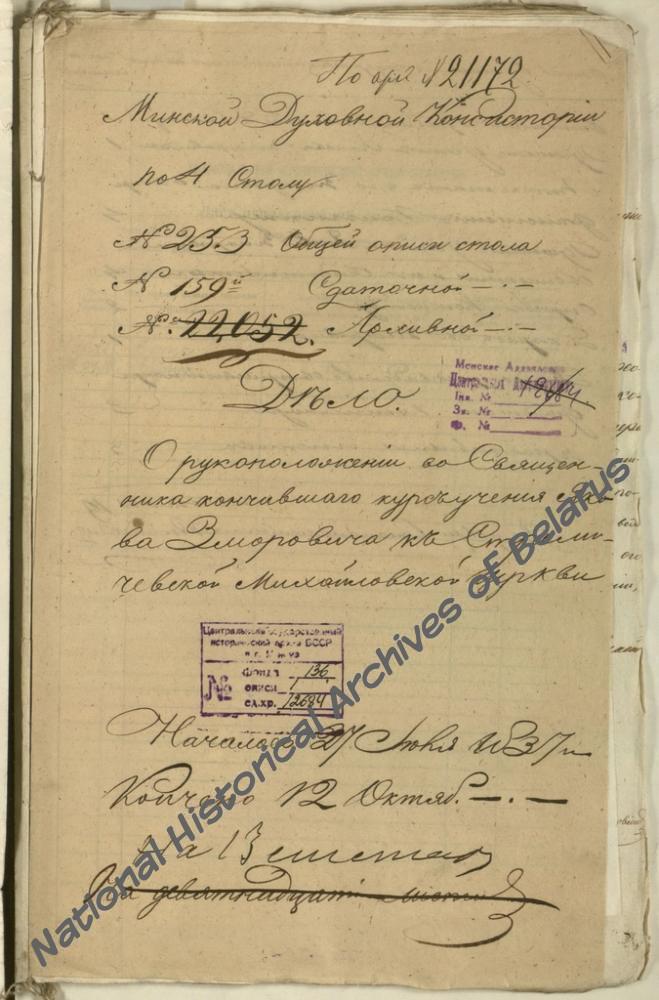 По арх № 21172
Минской Духовной Консисторіи
по 4 Столу
№ 253 Общей описи стола
№ 159й Сдаточной —·—
№ 22,052. Архивной —·—
Дѣло.
Менскае Аддзяленне
Центральн
Інв. №
Зв. №
Ф. №
О рукоположеніи во Священ-
ника кончившаго курсъ ученія
Зморовича къ
чевской Михайловской Церкви
Центральный Государственный
исторический архив БССР
в г. Минске
№
Фонд 136
описи 1
ед.хр. 12684
Началось 27 1837
Кончено 12 Октяб. —·—
На 13 листах
На девятнадцати листах
National Historical Archives of Belarus